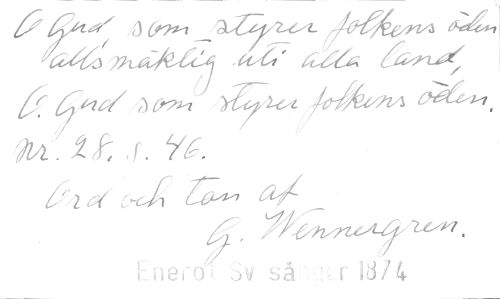 O Gud, som styrer folkens öden
allsmäktig uti alla land,
O. Gud som styrer folkens öden.
nr. 28. s. 46.
Ord och ton af
G. Wennergren.
Enerot Sv sånger 1874